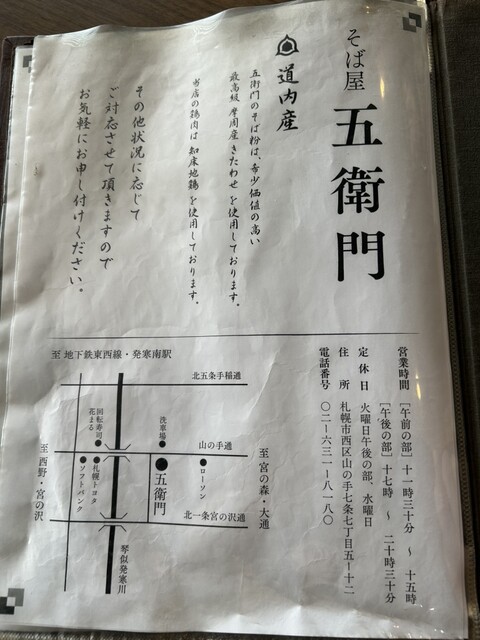 そば屋
五衛門
道内産
五衛門のそば粉は、希少価値の高い
最高級 摩周産きたわせ を使用しております。
当店の鶏肉は 知床地鶏 を使用しております。
その他状況に応じて
ご対応させて頂きますので
お気軽にお申し付けください。
営業時間 [午前の部] 十一時三十分 ～ 十五時
[午後の部] 十七時 ～ 二十時三十分
定休日 火曜日午後の部、水曜日
住所 札幌市西区山の手七条七丁目五ー十二
電話番号 〇一一ー六三一ー八一八〇
至 地下鉄東西線・発寒南駅
北五条手稲通
回転寿司
花まる
洗車場
山の手通
至 宮の森・大通
ローソン
五衛門
札幌トヨタ
ソフトバンク
至 西野・宮の沢
北一条宮の沢通
琴似発寒川